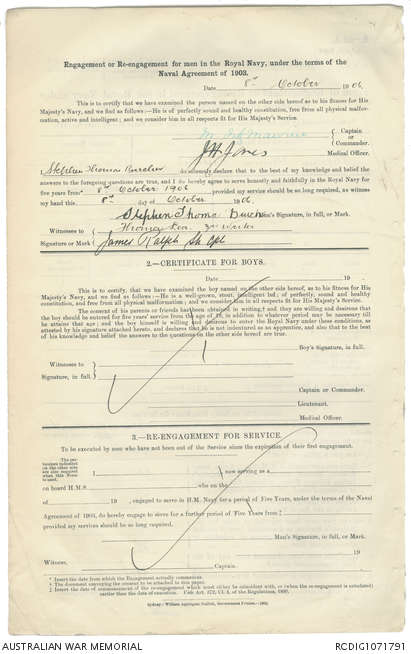 Engagement or Re-engagement for men in the Royal Navy, under the terms of the
Naval Agreement of 1903.
Date 8th October 1906.
This is to certify that we have examined the person named on the other side hereof as to his fitness for His
Majesty's Navy, and we find as follows:—He is of perfectly sound and healthy constitution, free from all physical malfor-
mation, active and intelligent; and we consider him in all respects fit for His Majesty's Service.
Captain
or
Commander.
J H Jones
Medical Officer.
I Stephen Thomas do solemnly declare that to the best of my knowledge and belief the
answers to the foregoing questions are true, and I do hereby agree to serve honestly and faithfully in the Royal Navy for
five years from* 8th October 1906 provided my service should be so long required, as witness
my hand this 8th day of October 1906.
Stephen Thomas Man's Signature, in full, or Mark.
Witnesses to
Signature or Mark James Ralph Sh Cpl
2.—CERTIFICATE FOR BOYS.
Date 19
This is to certify that we have examined the boy named on the other side hereof, as to his fitness for His
Majesty's Navy, and we find as follows:—He is a well-grown, stout, intelligent lad; of perfectly, sound and healthy
constitution, and free from all physical malformation; and we consider him in all respects fit for His Majesty's Service.
The consent of his parents or friends has been obtained in writing,† and they are willing and desirous that
the boy should be entered for five years' service from the age of 18, in addition to whatever period may be necessary till
he attains that age; and the boy himself is willing and desirous to enter the Royal Navy under these conditions, as
attested by his signature attached hereto, and declares that he is not indentured as an apprentice, and also that to the best
of his knowledge and belief the answers to the questions on the other side hereof are true.
Boy's Signature, in full.
Witnesses to
Signature, in full.
Captain or Commander.
Lieutenant.
Medical Officer.
3.—RE-ENGAGEMENT FOR SERVICE.
To be executed by men who have not been out of the Service since the expiration of their first engagement.
The particulars indicated on the other side are also required when this Form is used.
I now serving as a
on board H.M.S. who on the
of 19 , engaged to serve in H.M. Navy for a period of Five Years, under the terms of the Naval
Agreement of 1903, do hereby engage to serve for a further period of Five Years from‡
provided my services should be so long required.
Man's Signature, in full, or Mark.
19
Witness,
Captain.
* Insert the date from which the Engagement actually commences.
† The document conveying the consent to be attached to this paper.
‡ Insert the date of commencement of the re-engagement which must either be coincident with, or (when the re-engagement is antedated)
earlier than the date of execution. Vide Art. 372, Cl. 4, of the Regulations, 1906.
Sydney: William Applegate Gullick, Government Printer.
AUSTRALIAN WAR MEMORIAL
RCDIG1071791